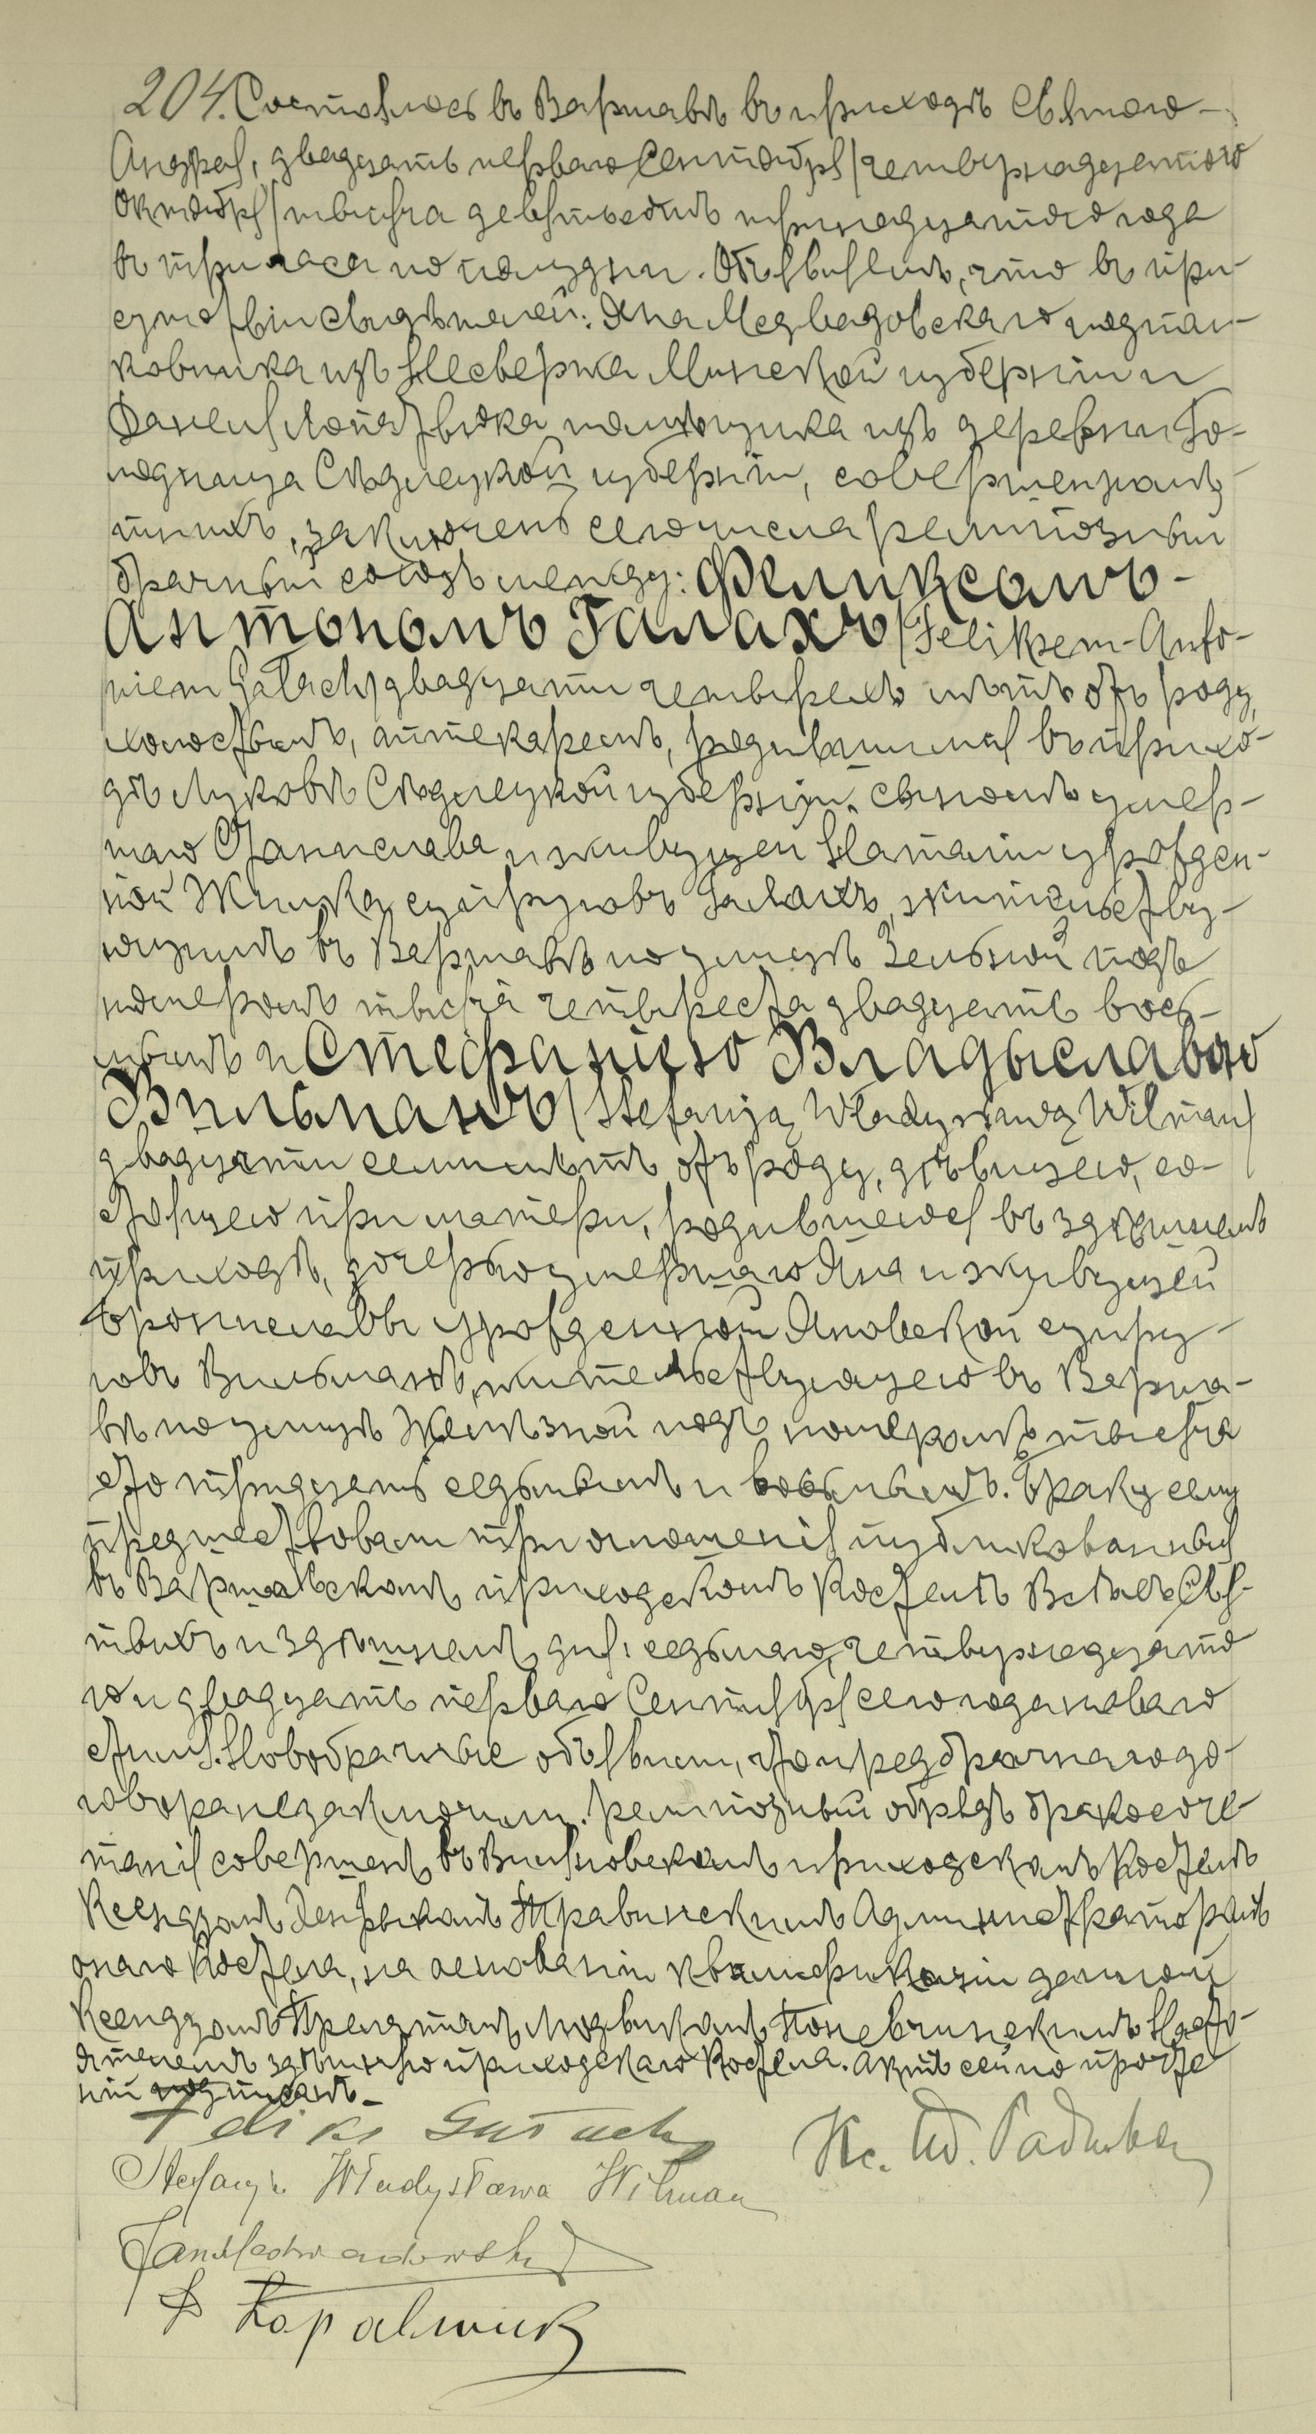 204. Состоялось въ Варшавѣ въ приходѣ Святого
Андрея, двадцать перваго Сентября /четырнадцатого
Октября/ тысяча девятьсотъ тринадцатого года
въ три часа по полудни. Объявляемъ, что въ при-
сутствіи свидѣтелей: Яна Медвадовскаго подпол-
ковника изъ Несвержа Минской губерніи и
Даніеля помѣщика изъ деревни Го-
Сѣдлецкой губерніи, совершеннолѣ-
тнихъ, заключенъ сего числа религіозный
брачный союзъ между: Феликсомъ-
Антономъ Галахъ /Feliksem-Anto-
niem Gałach/ двадцати четырехъ лѣтъ отъ роду,
холостымъ, аптекаремъ, родившимся въ прихо-
дѣ Луковѣ Сѣдлецкой губерніи, сыномъ умер-
шаго Станислава и живущей Наталіи урожден-
ной супруговъ Галахъ, жительству-
ющимъ въ Варшавѣ по улицѣ Зельной подъ
номеромъ тысяча четыреста двадцать вось-
мымъ и Стефаніею Владыславою
Вильманъ /Stefanją Władysławą Wilman/
двадцати семи лѣтъ отъ роду, дѣвицею, со-
стоящею при матери, родившеюся въ здѣшнемъ
приходѣ, дочерью умершаго Яна и живущей
Брониславы урожденной Яновской супру-
говъ Вильманъ, жительствующею въ Варша-
вѣ по улицѣ Желѣзной подъ номеромъ тысяча
сто тридцать седьмымъ и восьмымъ. Браку сему
предшествовали три оглашенія публикованныя
въ Варшавскомъ приходскомъ Костелѣ Всѣхъ Свя-
тыхъ и здѣшнемъ дня: седьмаго, четырнадцато-
го и двадцать перваго Сентября сего года новаго
стиля. Новобрачные объявили, что предбрачнаго до-
говора не заключили. Религіозный обрядъ бракосоче-
танія совершенъ въ Виляновскомъ приходскомъ Костелѣ
Ксендзомъ Генрыкомъ Травинскимъ Администраторомъ
онаго Костела, на основаніи данной
Ксендзомъ Прелатомъ Людвикомъ Поневчинскимъ Насто-
ятелемъ здѣшняго приходскаго Костела. Актъ сей по прочте-
ніи подписанъ.
Feliks Gałach
Stefanja Władysława Wilman
Jan Miedwiadowski
D